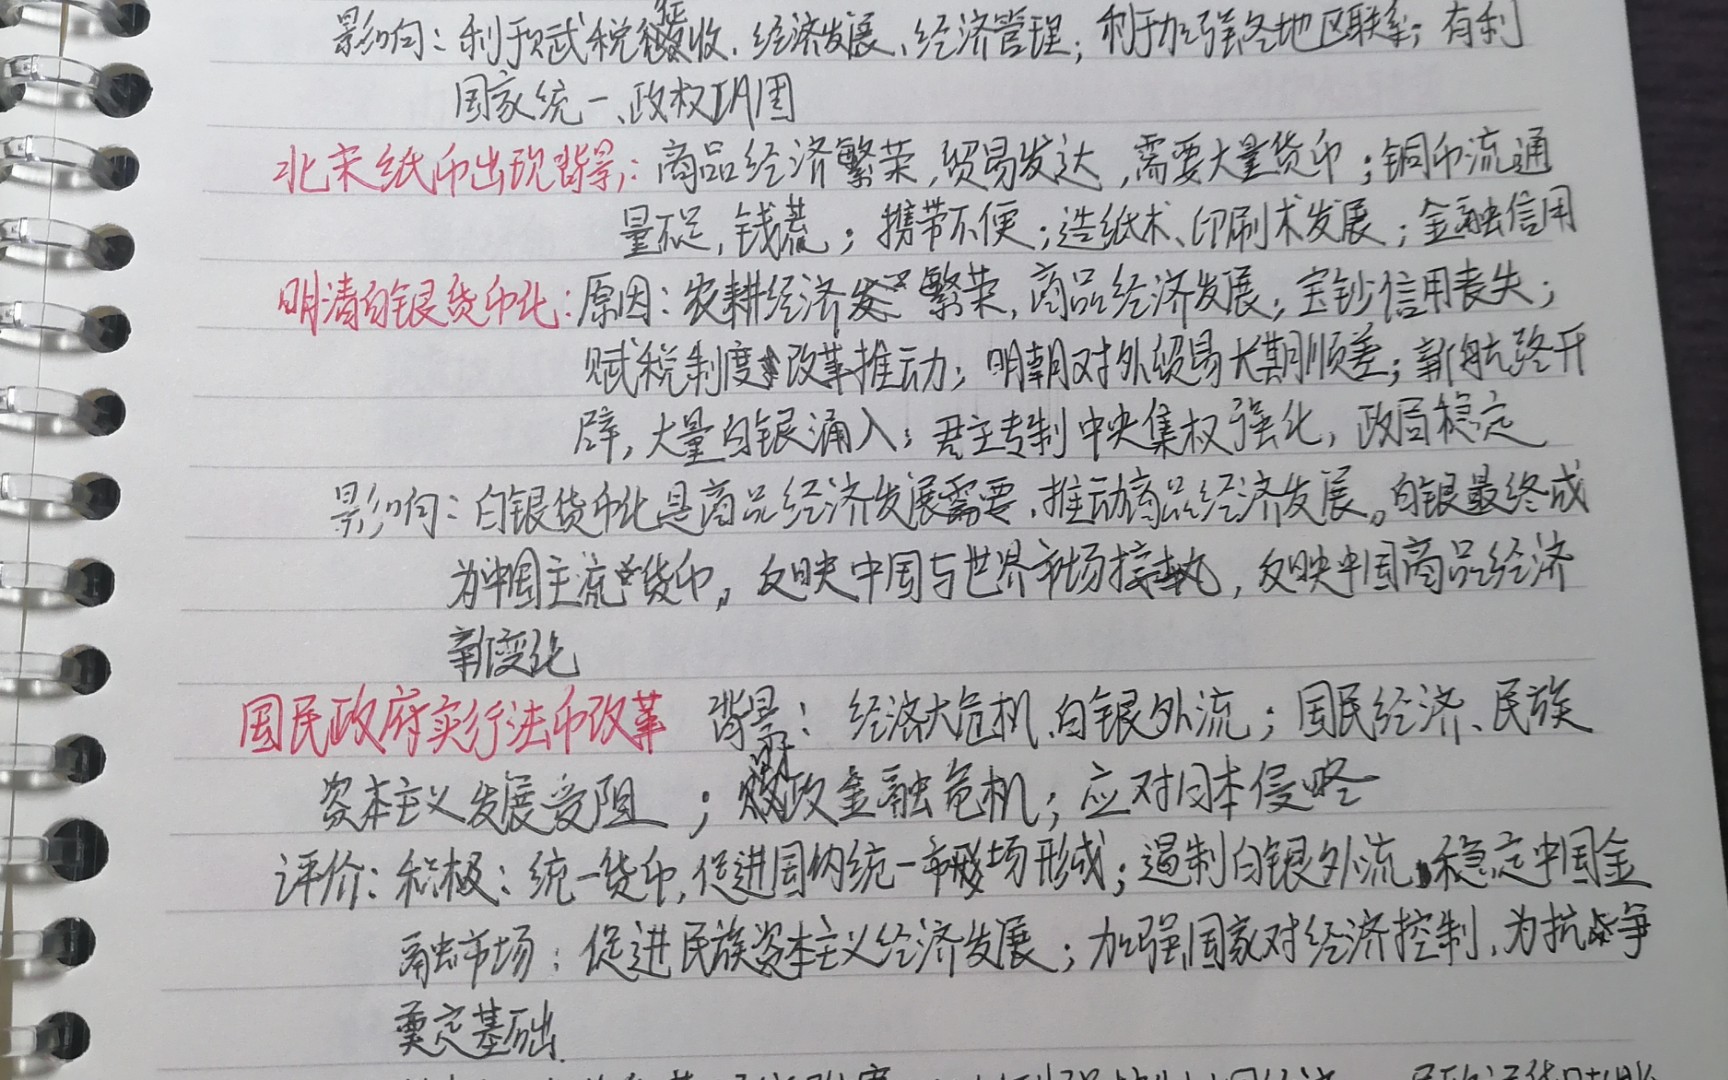 影响：利于赋税征收、经济发展、经济管理；利于加强各地区联系；有利
国家统一、政权巩固
北宋纸币出现背景：商品经济繁荣，贸易发达，需要大量货币；铜币流通
量不足，钱荒；携带不便；造纸术、印刷术发展；金融信用
明清白银货币化：原因：农耕经济繁荣，商品经济发展；宝钞信用丧失；
赋税制度改革推动；明朝对外贸易长期顺差；新航路开
辟，大量白银涌入；君主专制中央集权强化，政局稳定
影响：白银货币化是商品经济发展需要，推动商品经济发展。白银最终成
为中国主流货币。反映中国与世界市场接轨，反映中国商品经济
新变化
国民政府实行法币改革 背景：经济大危机、白银外流；国民经济、民族
资本主义发展受阻；财政金融危机；应对日本侵略
评价：积极：统一货币，促进国内统一市场形成；遏制白银外流，稳定中国金
融市场；促进民族资本主义经济发展；加强国家对经济控制，为抗战争
奠定基础